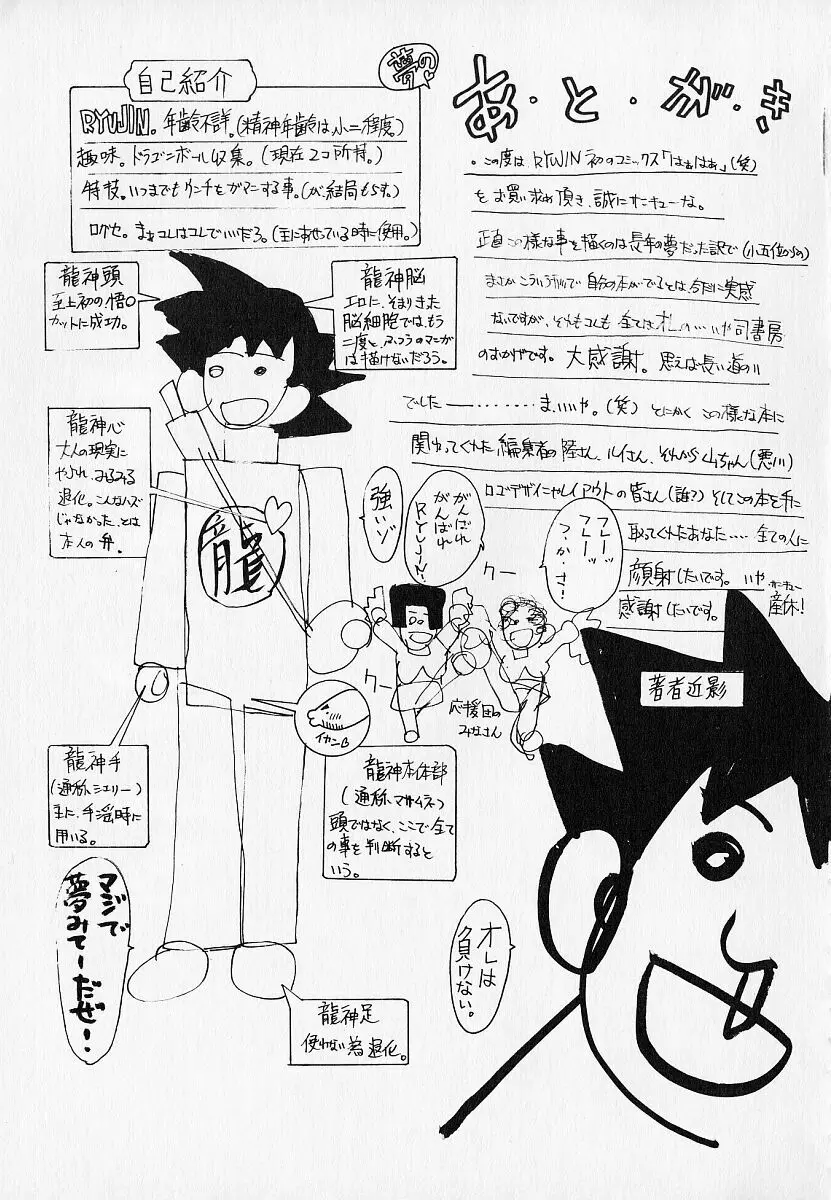 あ・と・が・き
・この度は RYUJIN 初のコミックス「はぁはぁ」(笑)
をお買い求め頂き、誠にサンキューな。
正直この様な事を描くのは長年の夢だった訳で(小五位からの)
まさかこういう形で自分の本がでるとは、今だに実感
ないですが、それもコレも 全ては オレの……いや司書房
のおかげです。大感謝。思えば長い道のり
でした――………ま、いいや。(笑) とにかく この様な本に
関わってくれた 編集者の陸さん、ルイさん、それから山ちゃん(悪川)
ロゴデザインやレイアウトの皆さん(誰?) そしてこの本を手に
取ってくれたあなた‥‥ 全ての人に
顔射したいです。いや、サンキュー
感謝したいです。産休!
夢の♡
自己紹介
RYUJIN。年齢不詳。(精神年齢は、小二程度)
趣味。ドラゴンボール収集。(現在2コ所持。)
特技。いつまでもウンチをガマンする事。(が、結局もらす。)
口グセ。まぁコレはコレでいいだろ。(主にあせっている時に使用。)
龍神頭
至上初の悟〇
カットに成功。
龍神脳
エロに、そまりきた
脳細胞では、もう
二度と、ふつうのマンガ
は描けないだろう。
龍神心
大人の現実に
やぶれ、みるみる
退化。こんなハズ
じゃなかった、とは
本人の弁。
龍
強いゾ
がんばれ
がんばれ
RYUJIN!
フレーッ
フレーッ
つ・か・さ!
クー
クー
応援団の
みなさん
著者近影
イヤンB
龍神手
(通称シェリー)
主に、手淫時に
用いる。
龍神本体部
(通称、マサムネ)
頭ではなく、ここで全て
の事を判断すると
いう。
マジで
夢みてーだぜ!
オレは
負けない。
龍神足
使わない為退化。